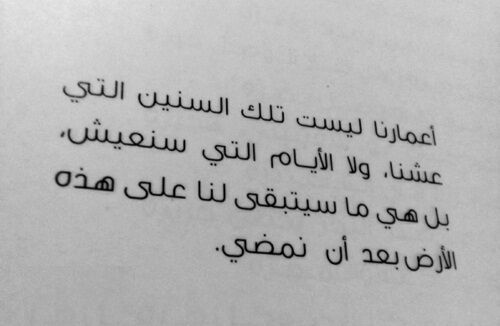 أعمارنا ليست تلك السنين التي
عشنا، ولا الأيام التي سنعيش،
بل هي ما سيتبقى لنا على هذه
الأرض بعد أن نمضي.